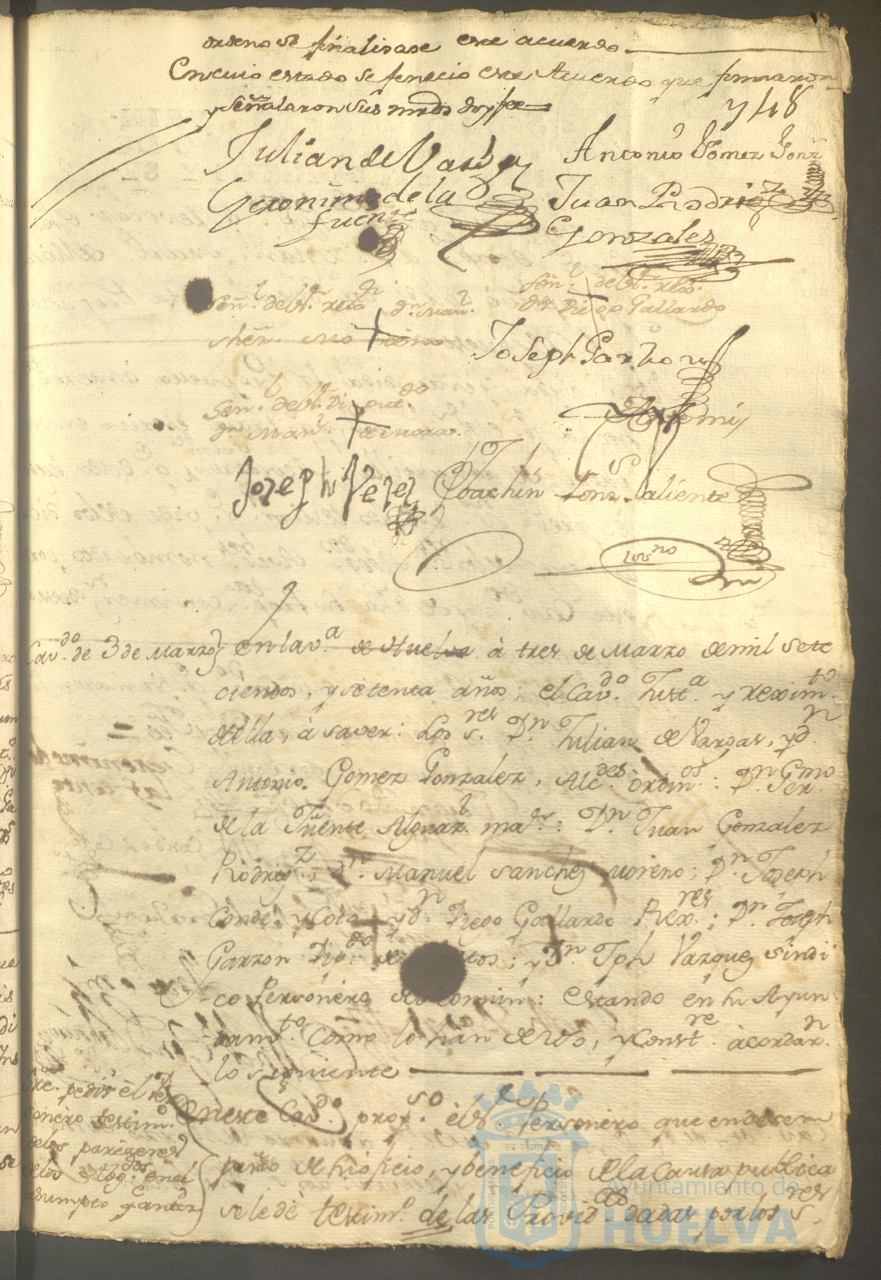 ordeno se finalisase este acuerdo
En cuio estado se fenecio este Acuerdo que firmaron
y señalaron sus mrds doy fee
Julian de Vargas Antonio Gomez Gonz
Geronimo de la Juan Rodriz
fuente Gonzales
Señl. de dn. Manl. Señl. de
Diego Gallardo
Joseph Garzon
Señl. de
dn. Manl. de mora
Joseph Perez Joachin Saliente
Cavdo. de 3 de Marzo} en la va. de Huelva à tres de Marzo de mil sete
cientos, y setenta años; el Cavdo. Justa. y Reximto.
de ella, à saver: Los sres. Dn. Julian de Vargas, y dn.
Antonio Gomez Gonzalez, Alcdes. ordinos: Dn. Germo.
de la Fuente Alguazl. mar.: Dn. Juan Gonzalez
Rodrigz., dn. Manuel Sanchez moreno; Dn. Joseph
Conde y Coto y dn. Diego Gallardo Rexres.; Dn. Joseph
Garzon Dipdo. de tos; y Dn. Jph Vazquez Sindi
co Personero del comun: estando en su Ayun
tamto. como lo han de uso, y Constre. àcordarn.
lo siguiente
pedir el Per
sonero testimo.
de los pareceres
de los Abogdos. en el
asumpto
En este Cavdo. propso. el Sr. Personero que en desem
peño de su oficio, y beneficio de la Causa publica
se le dè testimo. de las Provides. dadas por los sres.
Ayuntamiento de
HUELVA